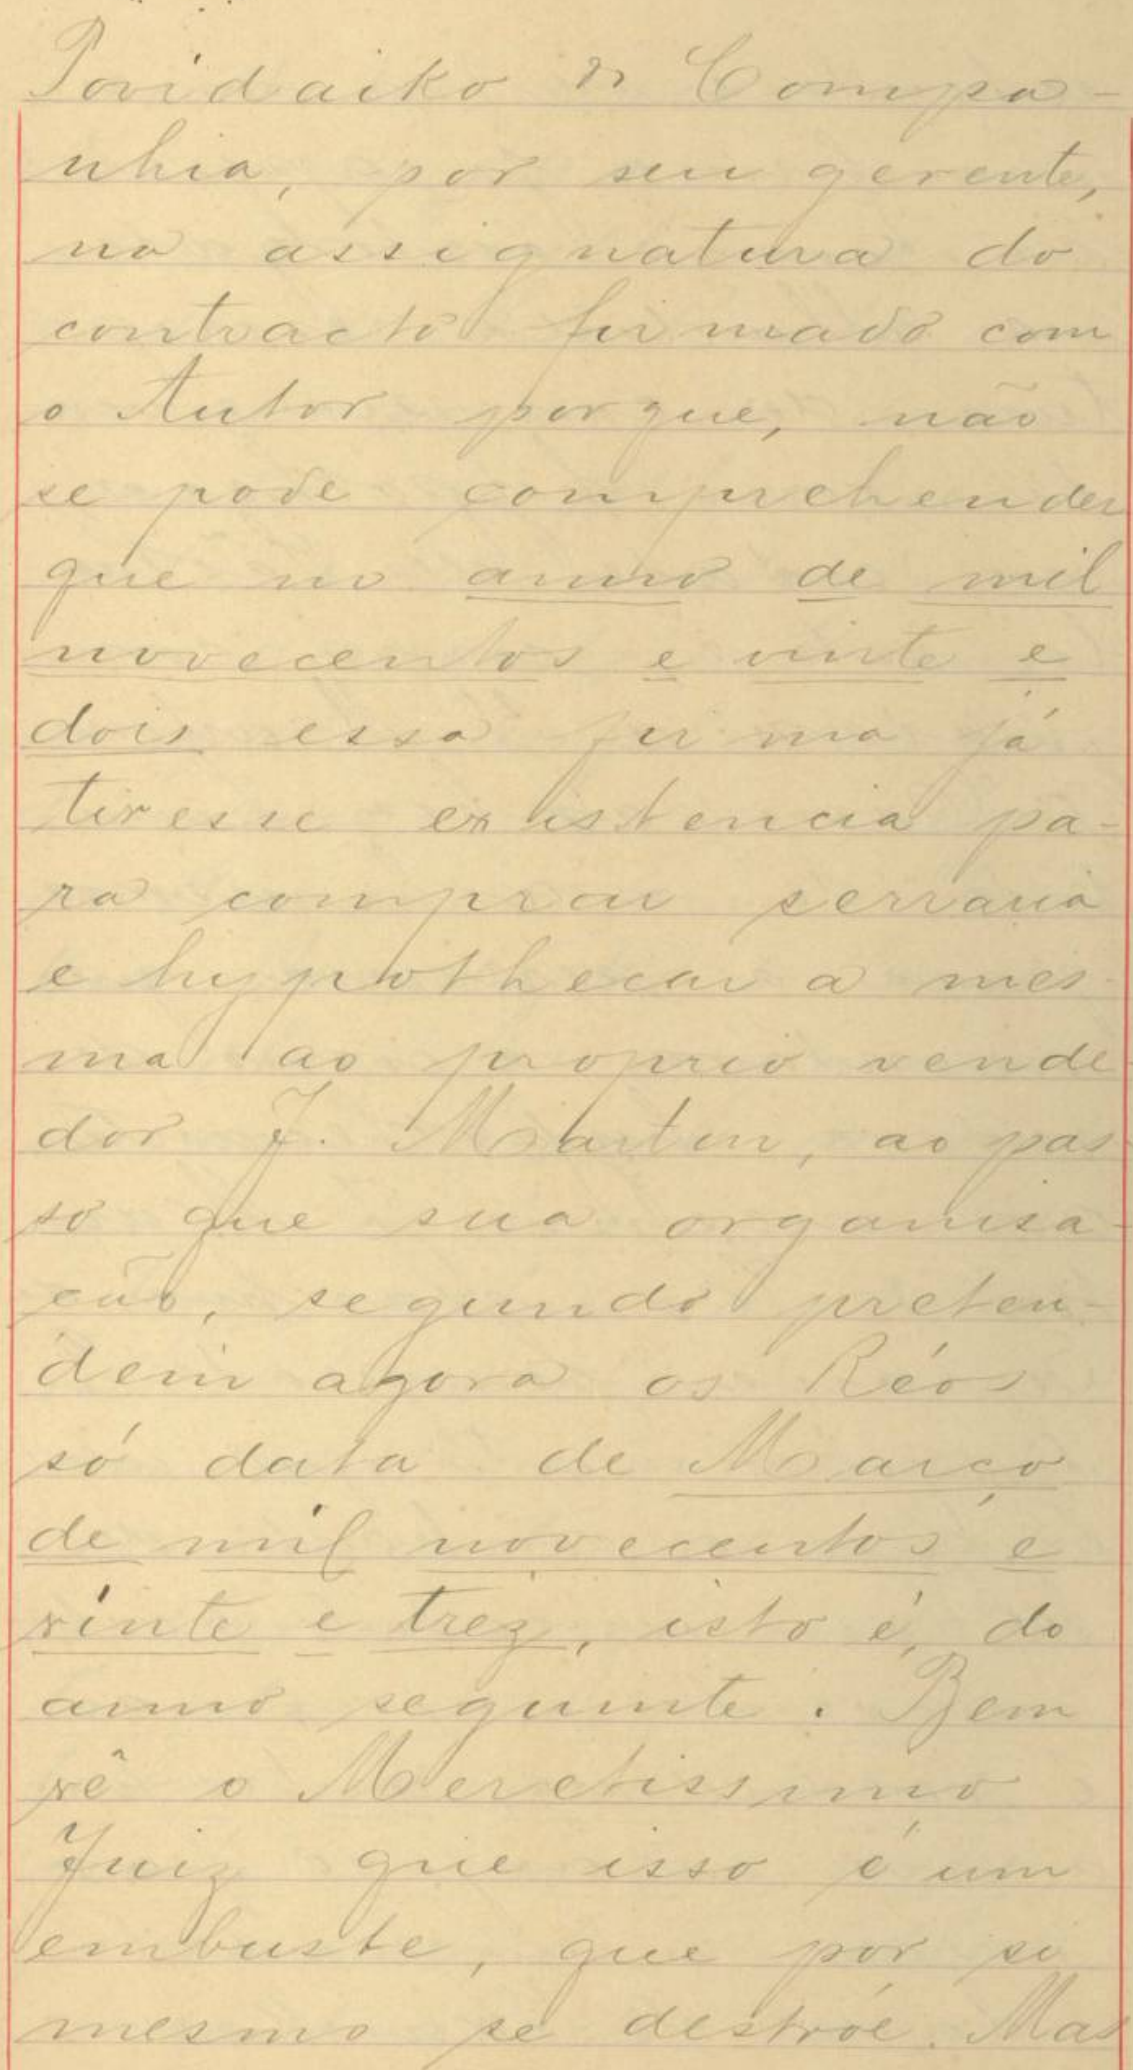 Povidaiko & Compa-
nhia, por seu gerente,
na assignatura do
contracto firmado com
o Autor porque, não
se pode comprehender
que no anno de mil
novecentos e vinte e
dois essa firma já
tivesse existencia pa-
ra comprar serraria
e hypothecar a mes-
ma ao proprio vende-
dor J. Martin, ao pas-
so que sua organisa-
ção, segundo preten-
dem agora os Réos
só data de Março
de mil novecentos e
vinte e trez, isto é, do
anno seguinte. Bem
vê o Meretissimo
Juiz que isso é um
embuste, que por si
mesmo se destróe. Mas